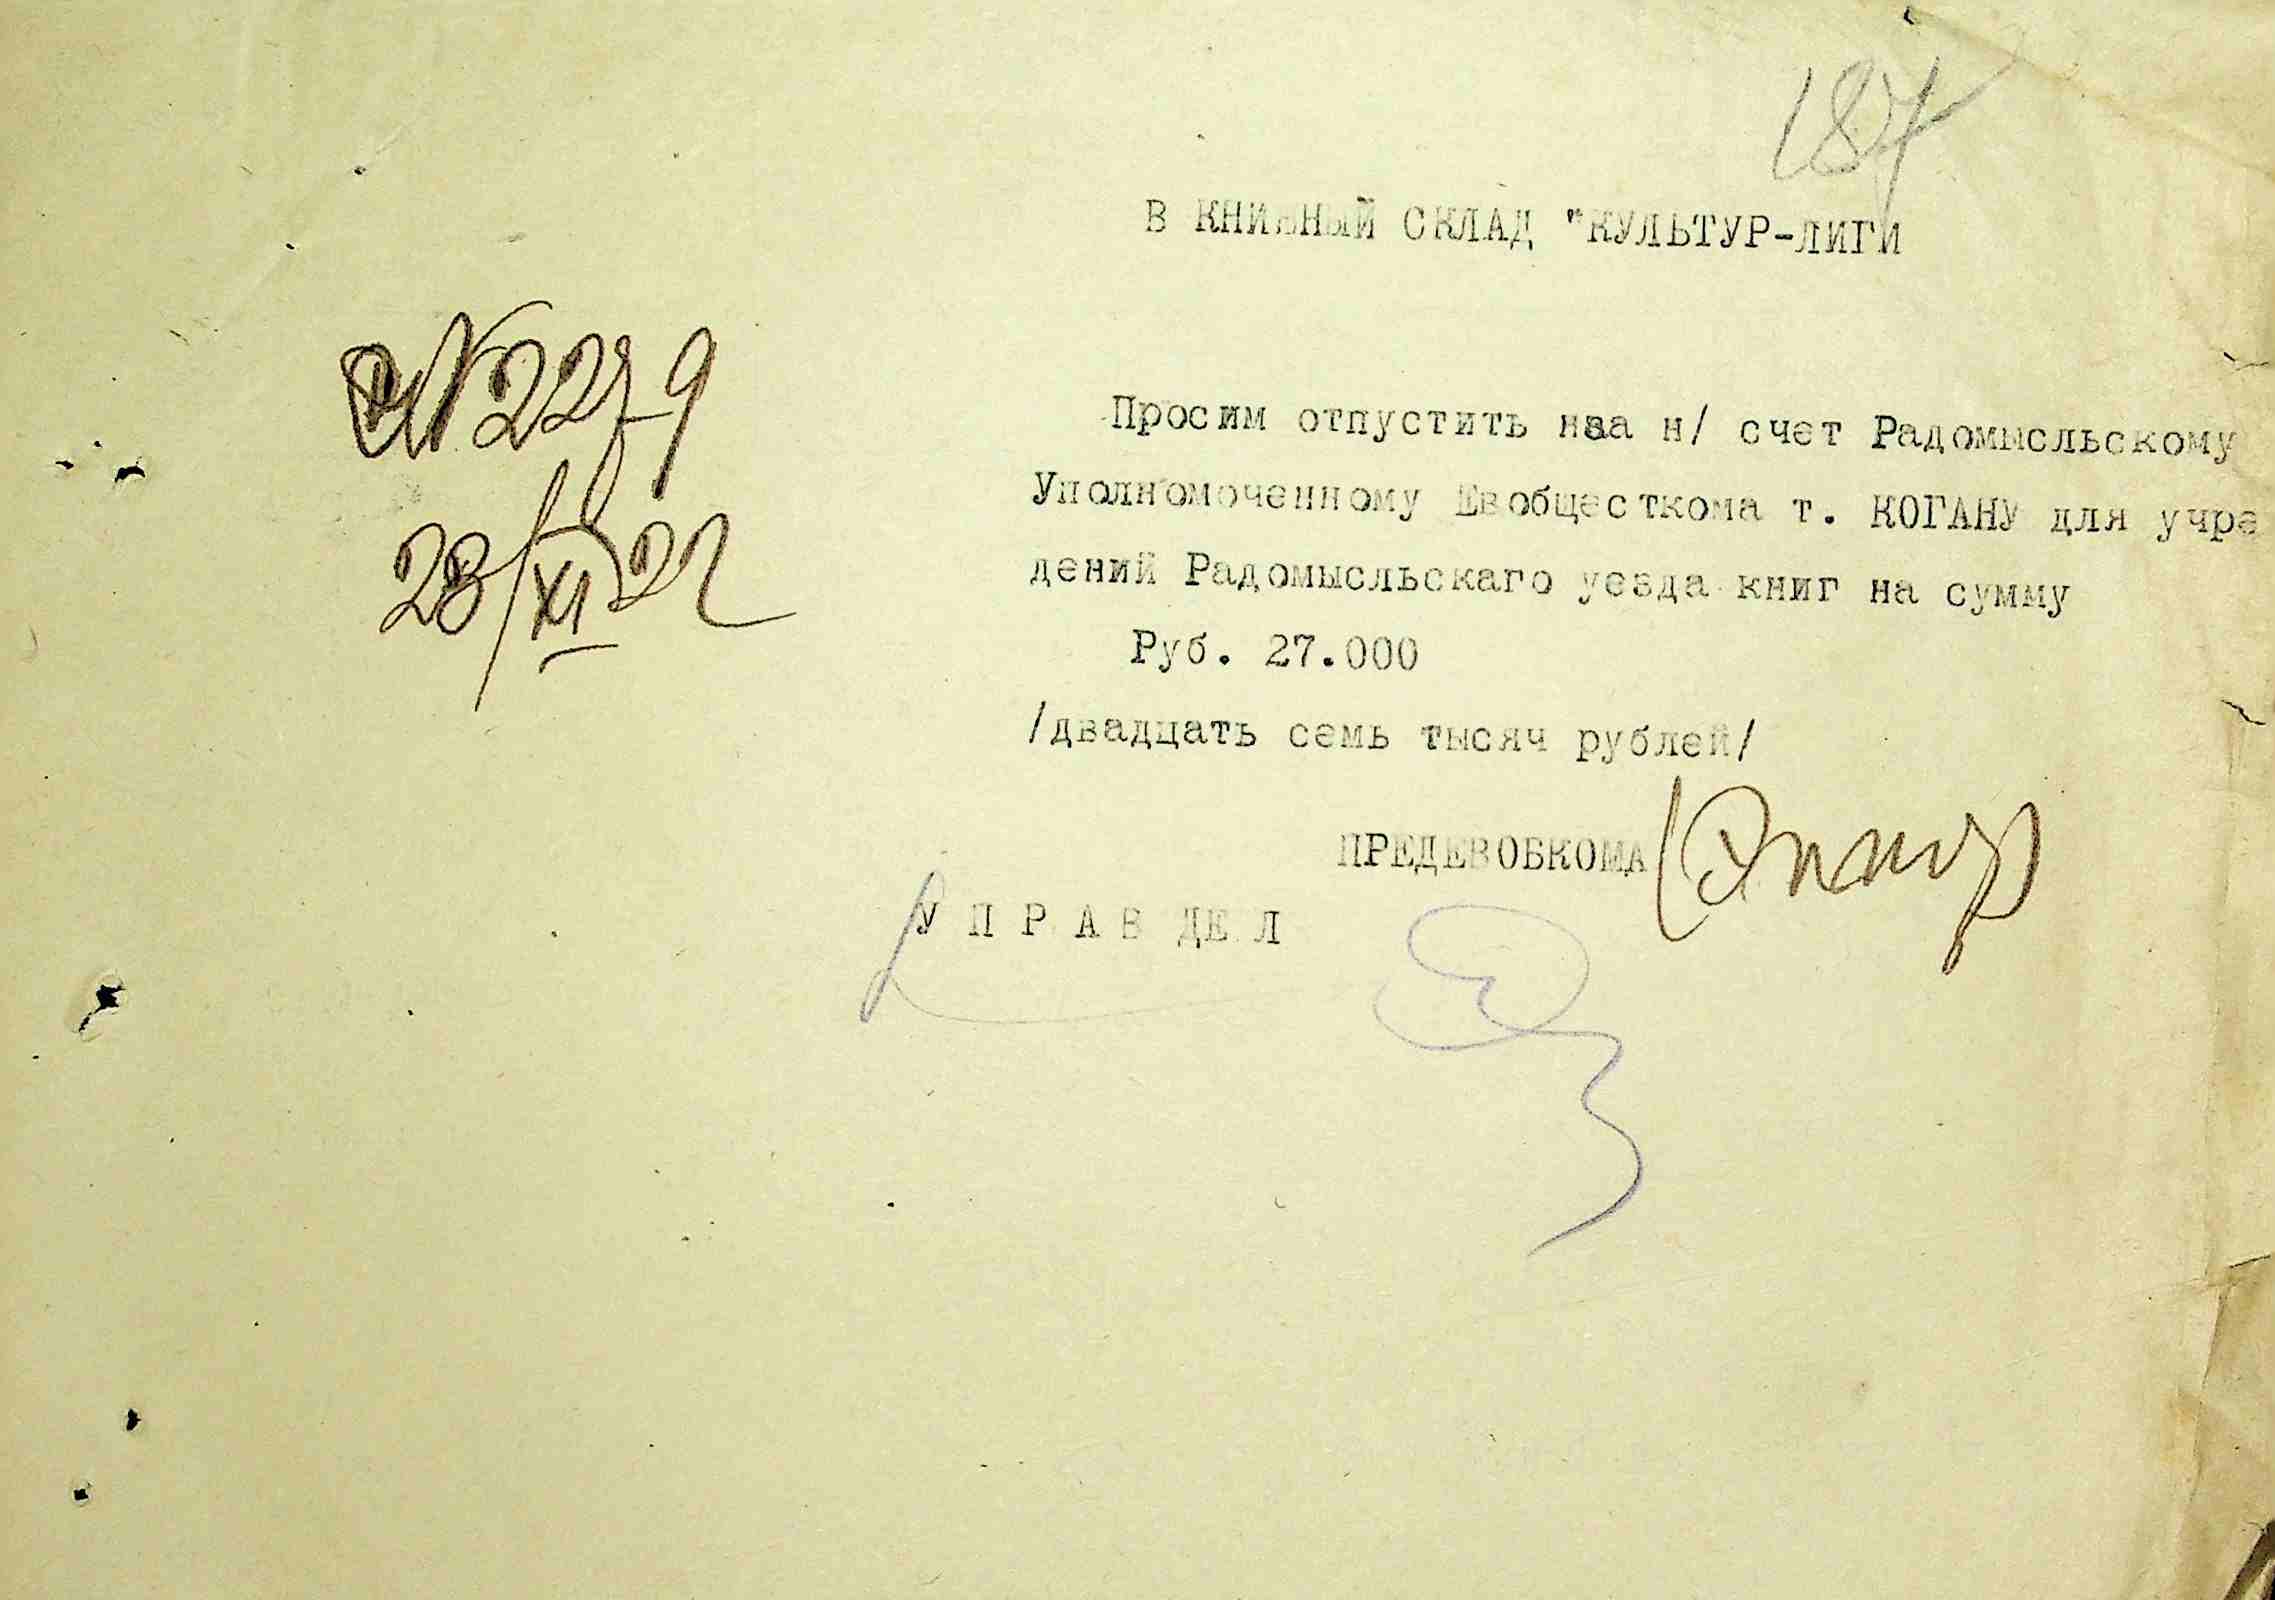 187
В КНИЖНЫЙ СКЛАД "КУЛЬТУР-ЛИГИ
№ 2279
23/XI 22
Просим отпустить наа н/ счет Радомысльскому
Уполномоченному Евобщесткома т. КОГАНУ для учре
дений Радомысльскаго уезда книг на сумму
Руб. 27.000
/двадцать семь тысяч рублей/
ПРЕДЕВОБКОМА
УПРАВДЕЛ